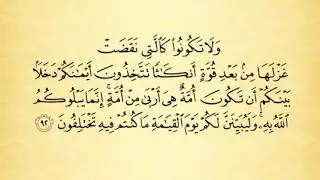 وَلَا تَكُونُوا۟ كَٱلَّتِى نَقَضَتْ
غَزْلَهَا مِنۢ بَعْدِ قُوَّةٍ أَنكَـٰثًا تَتَّخِذُونَ أَيْمَـٰنَكُمْ دَخَلًۢا
بَيْنَكُمْ أَن تَكُونَ أُمَّةٌ هِىَ أَرْبَىٰ مِنْ أُمَّةٍ ۚ إِنَّمَا يَبْلُوكُمُ
ٱللَّهُ بِهِۦ ۚ وَلَيُبَيِّنَنَّ لَكُمْ يَوْمَ ٱلْقِيَـٰمَةِ مَا كُنتُمْ فِيهِ تَخْتَلِفُونَ ٩٢